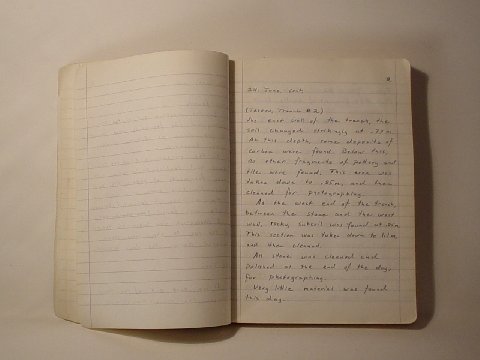 24 June, cont.
(Sareen, Trench #2)
the east wall of the trench, the
soil changed strikingly at .75m.
At this depth, some deposits of
carbon were found. Below this,
no other fragments of pottery and
tile were found. This area was
taken down to .85m, and then
cleaned for photographing.
At the west end of the trench,
between the stone and the west
wall, rocky subsoil was found at
This section was taken down to 1.10m
and then cleaned.
All stone was cleaned and
polished at the end of the day,
for photographing.
Very little material was found
this day.